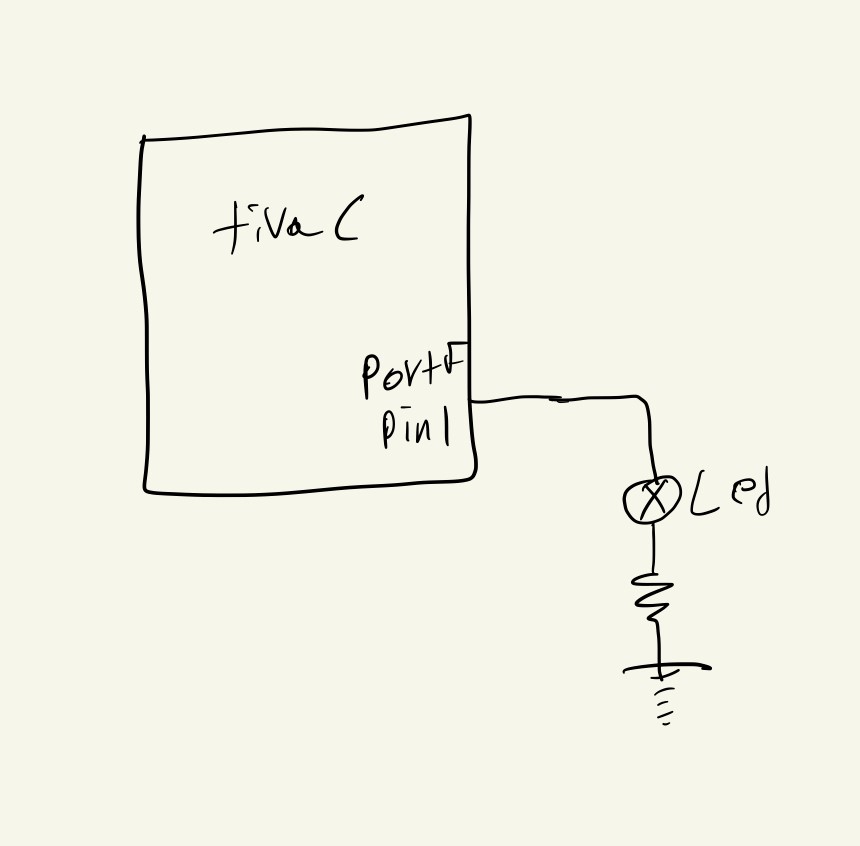 tiva C
PortF
Pin1
Led